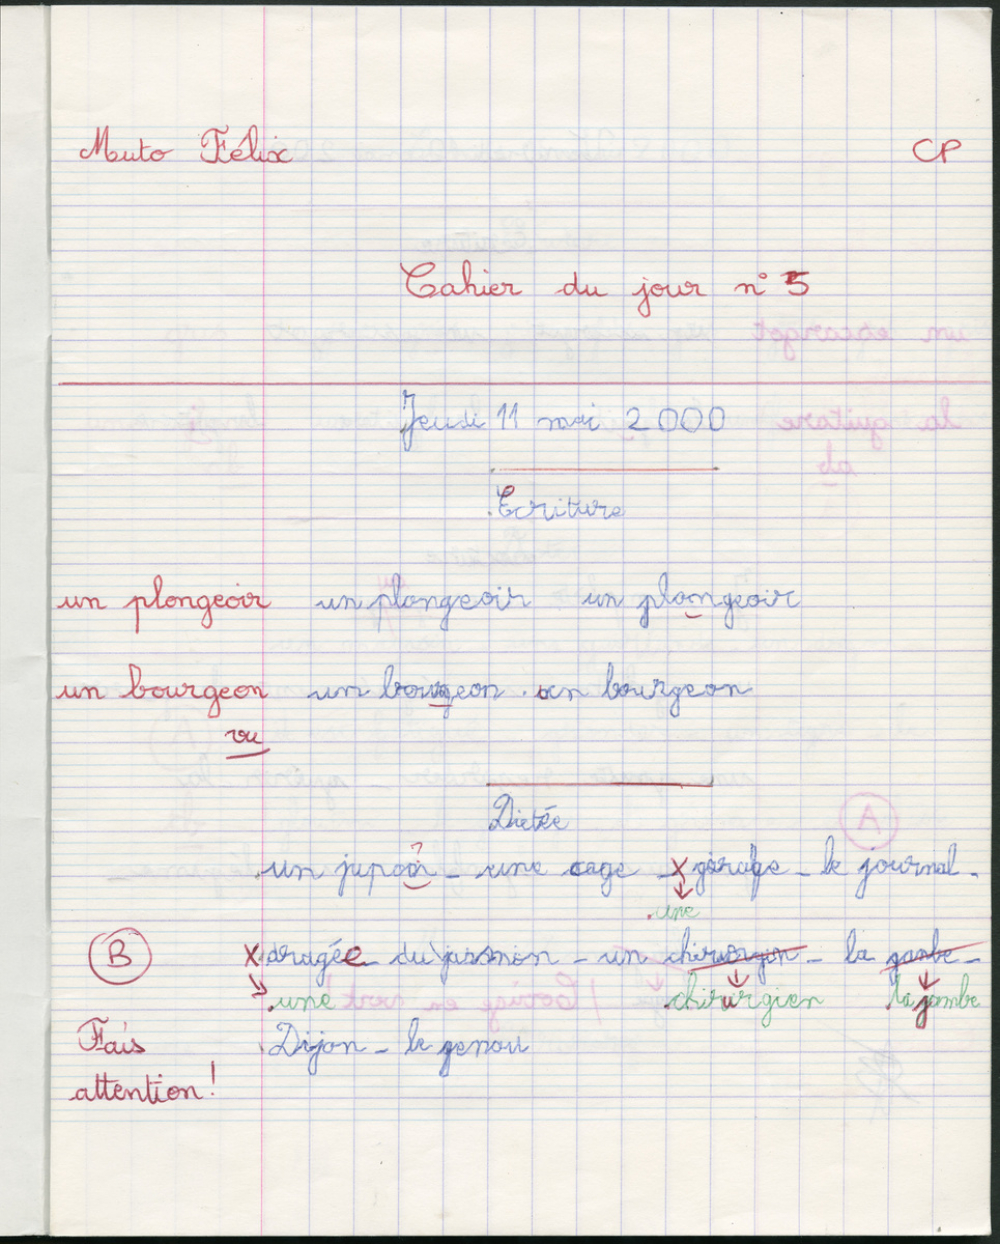 Muto Félix CP
Cahier du jour n° 5
Jeudi 11 mai 2000
Ecriture
un plongeoir un plongeoir un plongeoir
un bourgeon un bourgeon un bourgeon
vu
Dictée
A
un jupon - une cage - X garage - le journal -
une
B X dragée du jasmin - un - la gambe -
une chirurgien la jambe
Fais Dijon - le genou
attention !